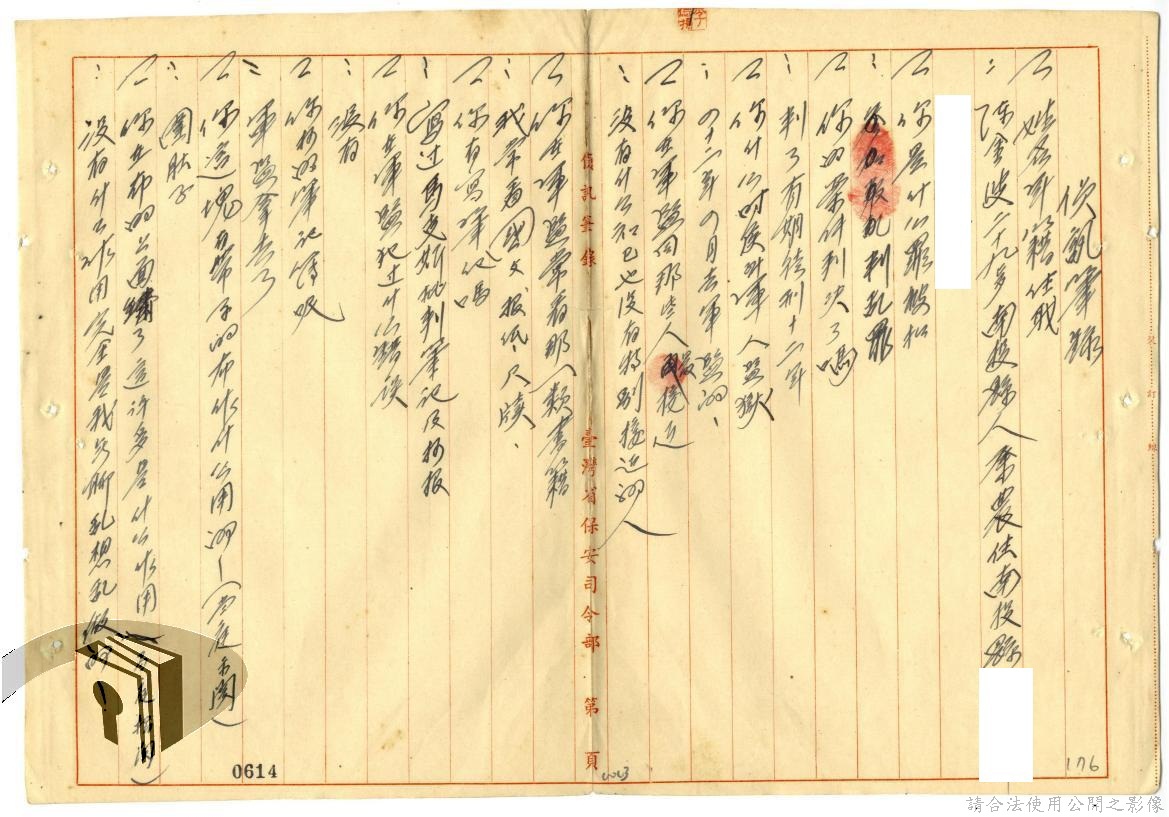 偵訊筆錄
問 姓名年籍住職
答 陳金 二十九歲 南投縣人 業農 住南投縣
問 你是什么罪被判
答 參加叛乱判乱罪
問 你的案件判決了嗎
答 判了有期徒刑十二年
問 你什么时侯到軍人監獄
答 四十二年四月去軍監的、
問 你在軍監同那些人最接近
答 沒有什么知己也沒有特別接近的人
問 你在軍監常看那一類書籍
答 我常看國文、报纸、尺牘、
問 你有寫筆記嗎
答 寫过馬克斯批判筆記及抄报
問 你在軍監犯过什么錯誤
答 沒有
問 你抄的筆記簿呢
答 軍監拿去了
問 你這塊 帶子的布作什么用的（當庭示閱）
答 圍肚子
問 你在布的上面 了這許多是什么作用（ ）
答 沒有什么作用完全是我 乱想乱做的
偵訊筆錄
臺灣省保安司令部 第 頁
裝 訂 線
176
0614
請合法使用公開之影像